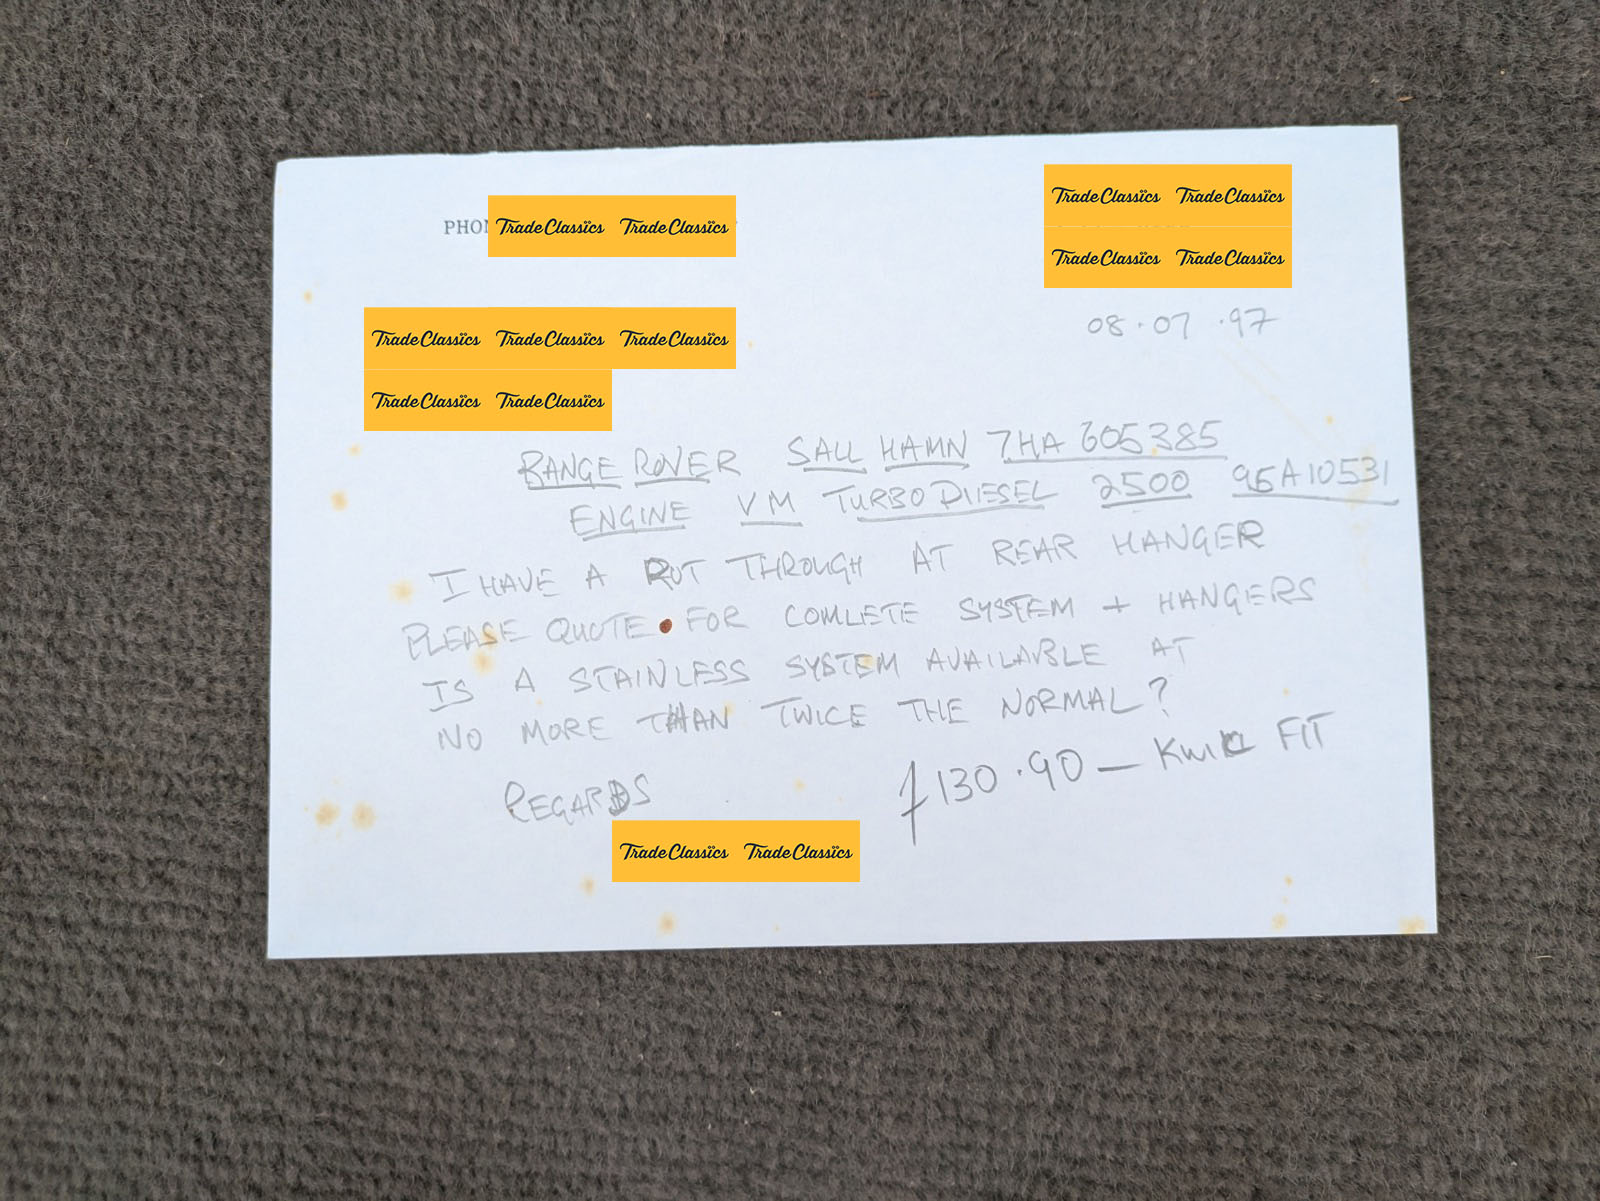 PHO
TradeClassics TradeClassics
TradeClassics TradeClassics
TradeClassics TradeClassics
TradeClassics TradeClassics TradeClassics
TradeClassics TradeClassics
08.07.97
RANGE ROVER SALL HAMN 7HA 605385
ENGINE VM TURBO DIESEL 2500 95A10531
I HAVE A ROT THROUGH AT REAR HANGER
PLEASE QUOTE FOR COMLETE SYSTEM + HANGERS
IS A STAINLESS SYSTEM AVAILABLE AT
NO MORE THAN TWICE THE NORMAL?
REGARDS
£130.90 — KWIK FIT
TradeClassics TradeClassics